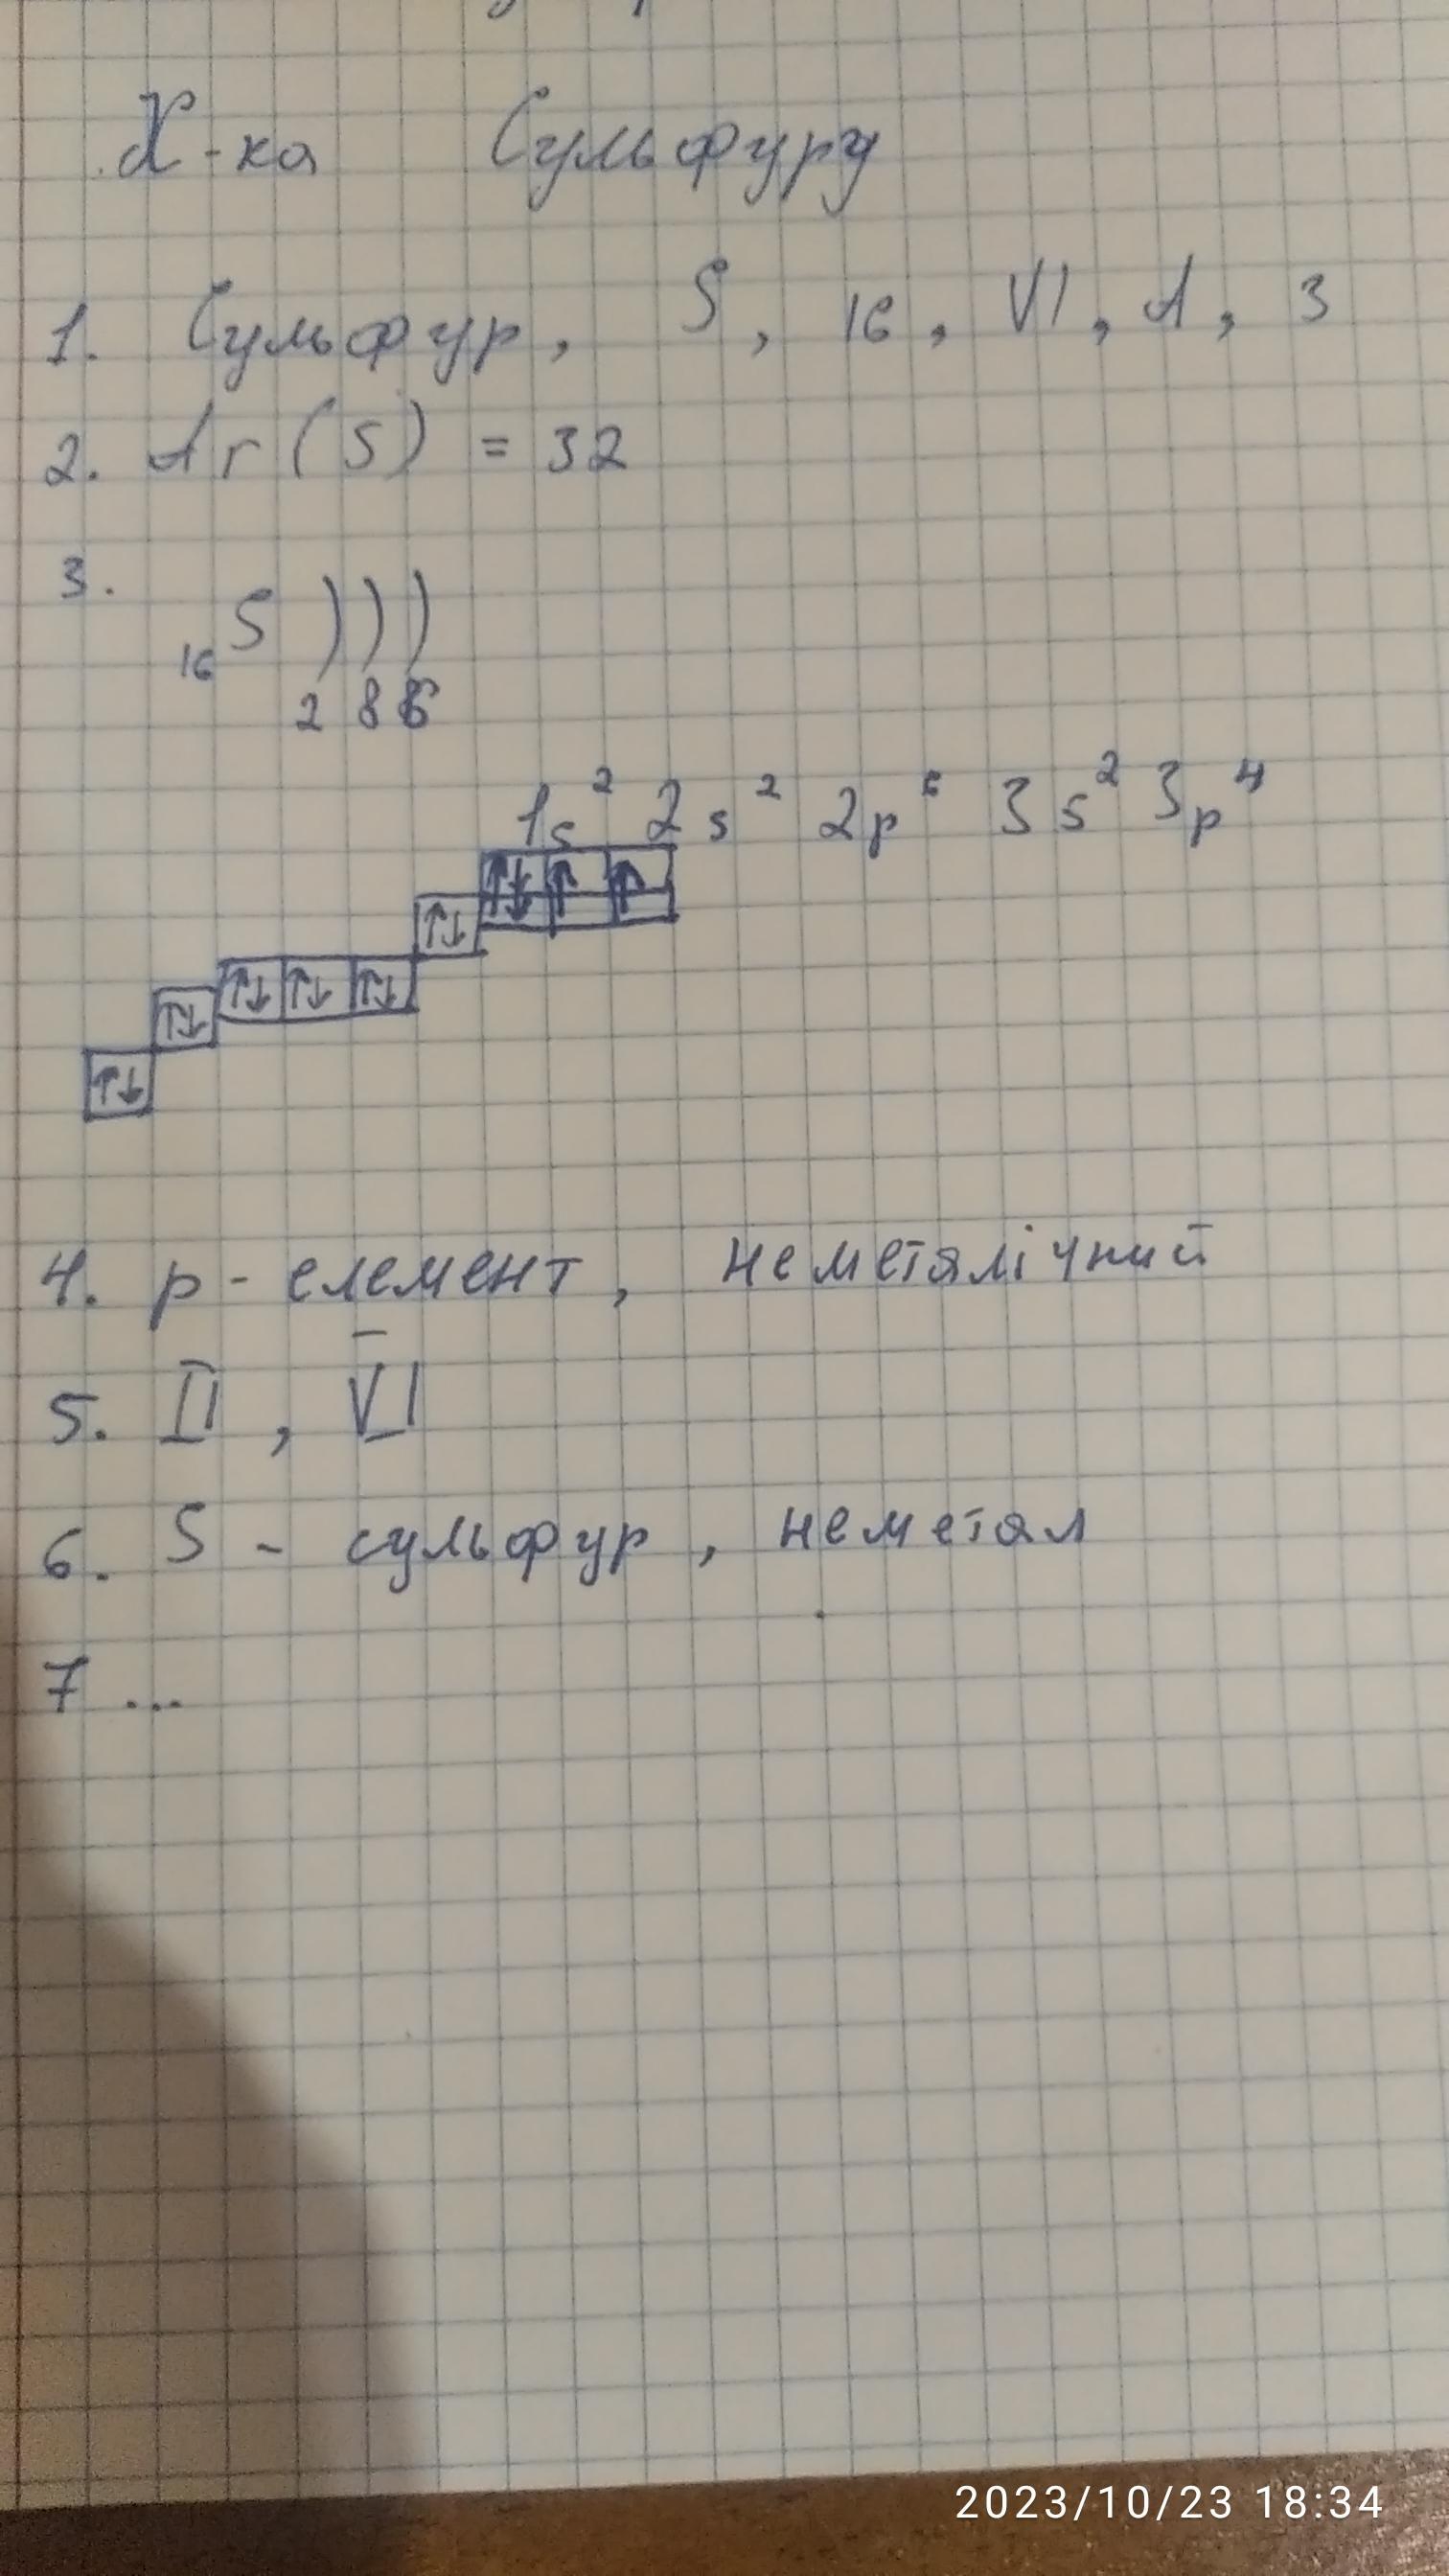 Х-ка Сульфуру
1. Сульфур, S, 16, VI, А, 3
2. Ar(S) = 32
3.
16 S ) ) )
2 8 6
1s² 2s² 2p⁶ 3s² 3p⁴
↑↓ ↑ ↑
↑↓
↑↓ ↑↓ ↑↓
↑↓
↑↓
4. p - елемент, неметалічний
5. II, VI
6. S - сульфур, неметал
7 ...
2023/10/23 18:34